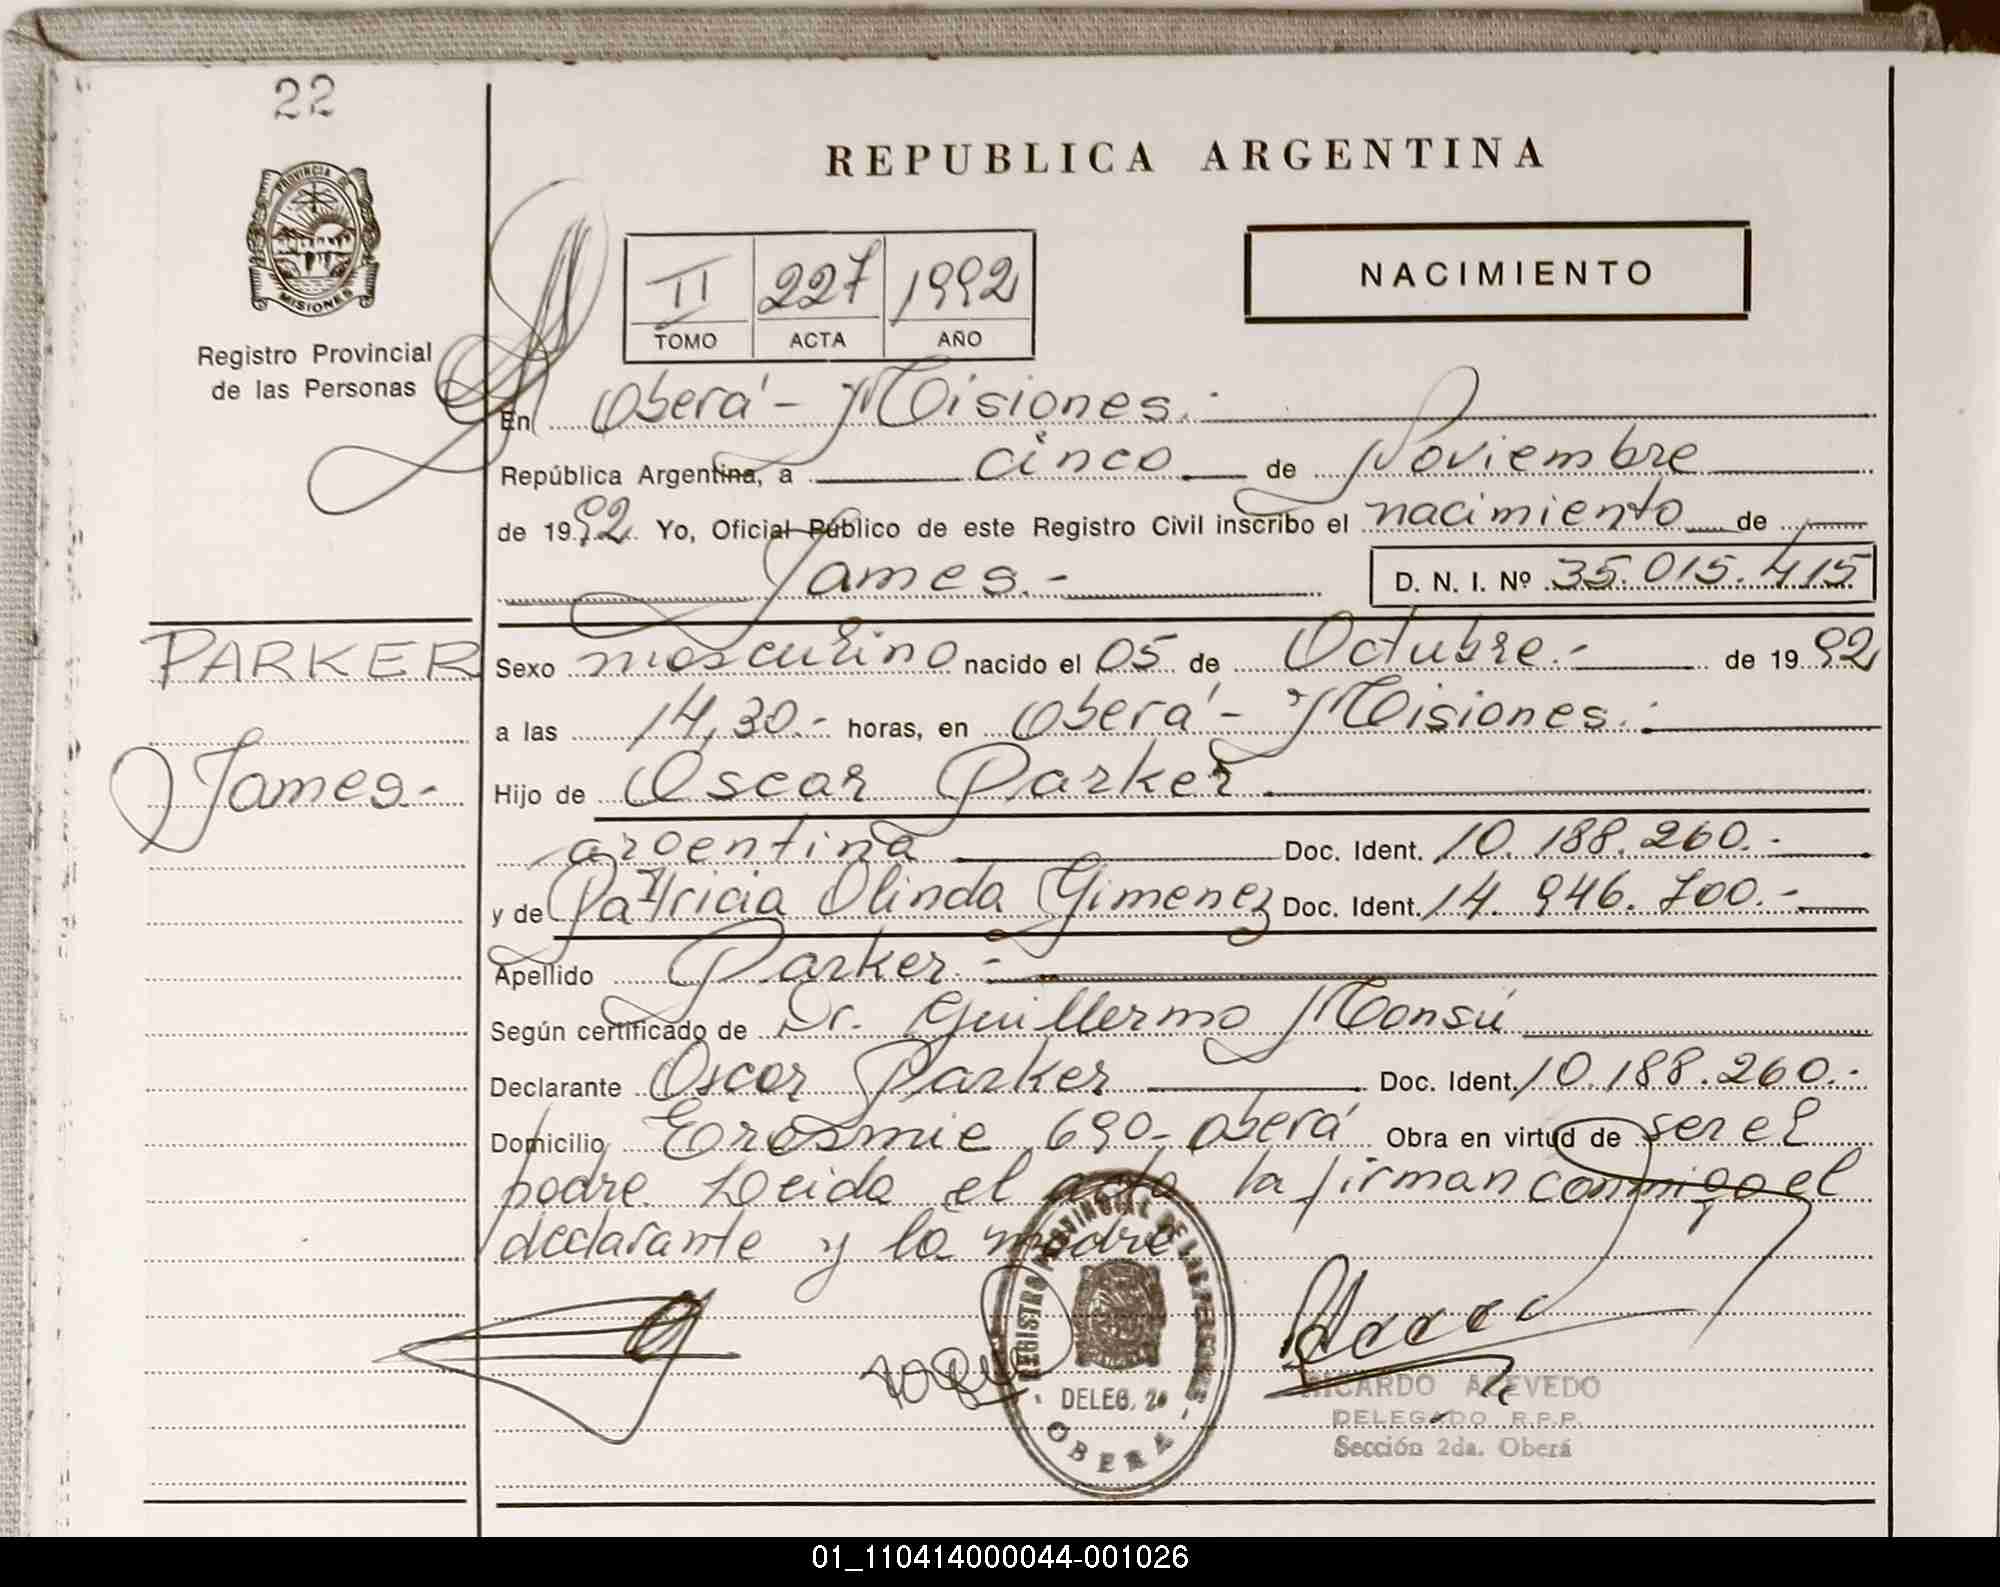 22
REPUBLICA ARGENTINA
PROVINCIA DE
MISIONES
Registro Provincial
de las Personas
II 227 1992
TOMO ACTA AÑO
NACIMIENTO
En Oberá - Misiones.-
República Argentina, a cinco de Noviembre
de 1992 Yo, Oficial Público de este Registro Civil inscribo el nacimiento de
James.- D. N. I. Nº 35.015.415
PARKER
James.-
Sexo masculino nacido el 05 de Octubre.- de 1992
a las 14,30.- horas, en Oberá - Misiones.-
Hijo de Oscar Parker
argentina Doc. Ident. 10.188.260.-
y de Patricia Olinda Gimenez Doc. Ident. 14.946.700.-
Apellido Parker.-
Según certificado de Dr. Guillermo Monsú
Declarante Oscar Parker Doc. Ident. 10.188.260.-
Domicilio Erasmie 690- Oberá Obra en virtud de ser el
padre. Leida el acta la firman conmigo el
declarante y la madre
REGISTRO PROVINCIAL DE LAS PERSONAS
DELEG. 2a
OBERA
RICARDO ACEVEDO
DELEGADO R.P.P.
Sección 2da. Oberá
01_110414000044-001026